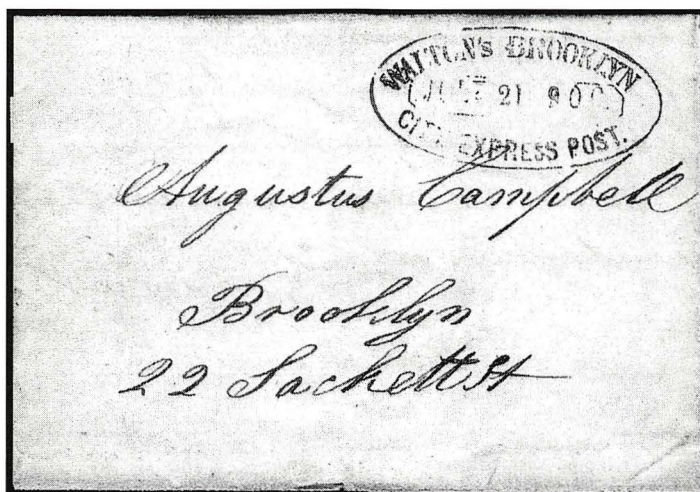 WALTON'S BROOKLYN
21 9 O'C
CITY EXPRESS POST.
Augustus Campbell
Brooklyn
22 Sackett St